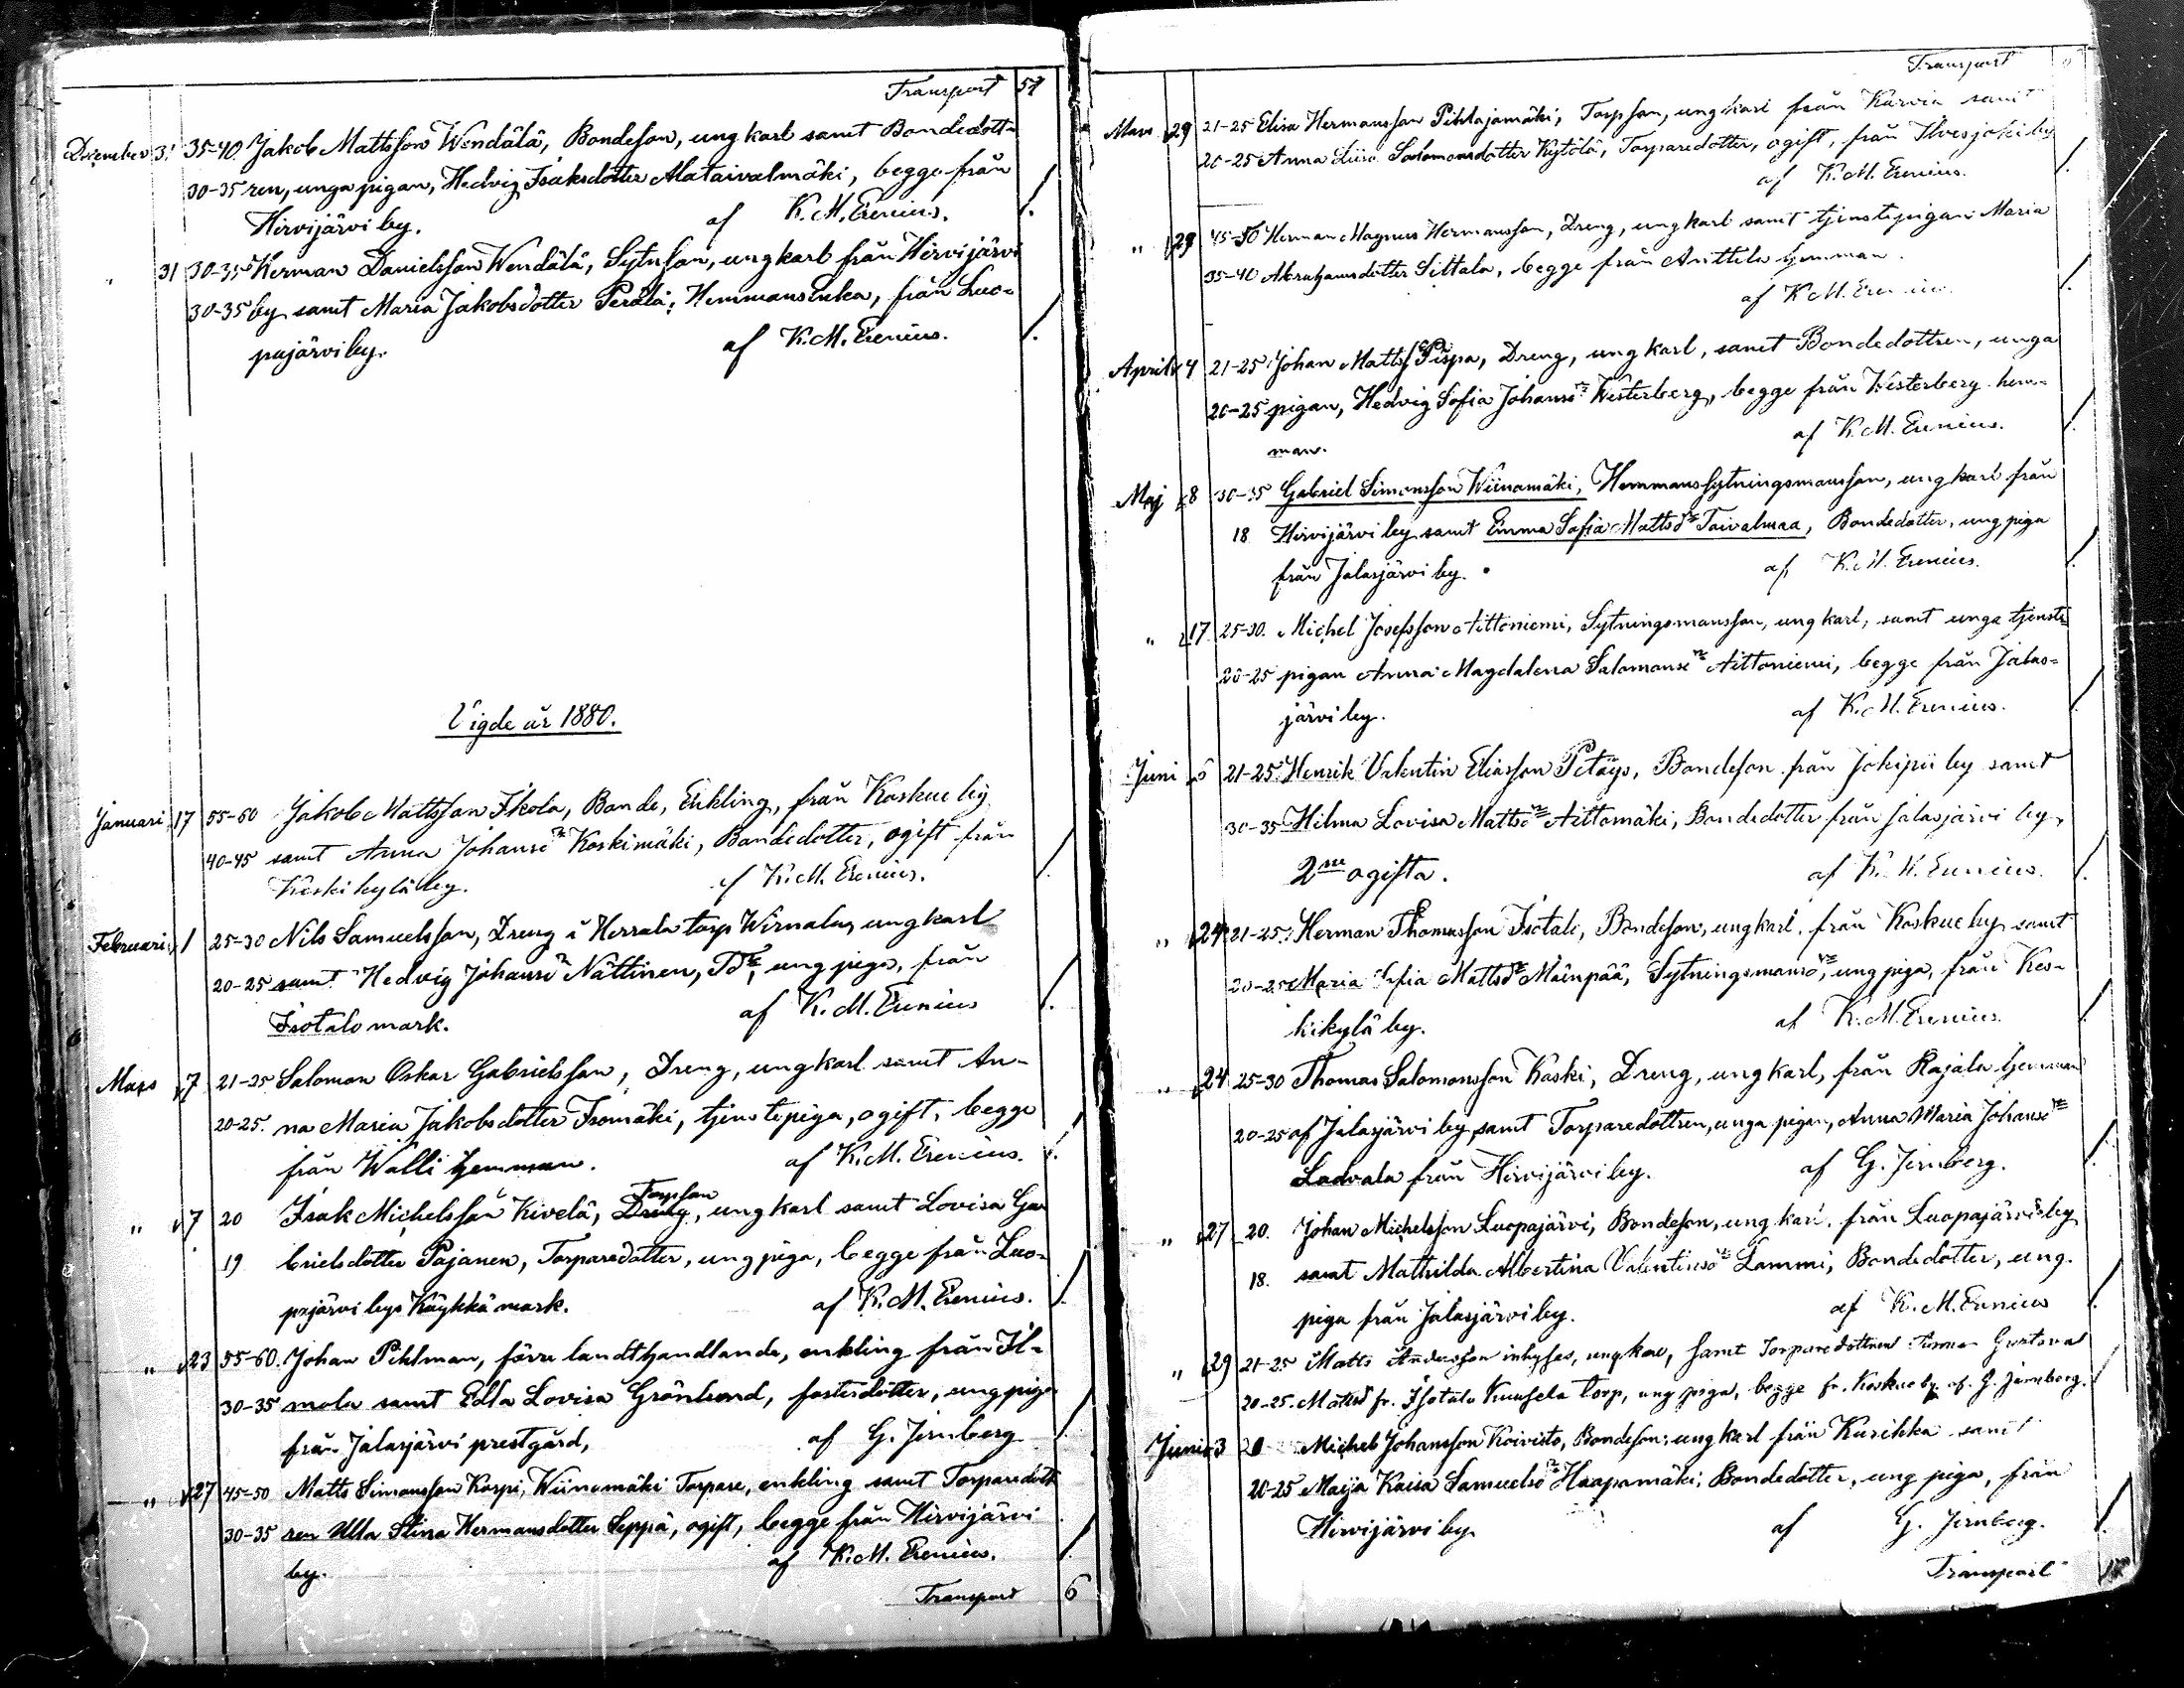 Transport 54
December 31 35-40 Jakob Mattsson Wendälä, Bondeson, ungkarl samt Bondedott-
30-35 ren, unga pigan, Hedvig Isaksdotter Alataivalmäki, begge från
Hirvijärvi by. af K. M. Erenius. /.
" 31 30-35 Herman Danielsson Wendälä, Sytnson, ungkarl från Hirvijärvi
30-35 by samt Maria Jakobsdotter Perälä, Hemmansenka, från Luo-
pajärvi by. af K. M. Erenius. /.
Vigde år 1880.
Januari 17 55-60 Jakob Mattsson Ikola, Bonde, Enkling, från Koskue by
40-45 samt Anna Johansd:r Koskimäki, Bondedotter, ogift från
Keskikylä by. af K. M. Erenius. /.
Februari 1 25-30 Nils Samuelsson, Dreng å Herrala torp Wirnala, ungkarl
20-25 samt Hedvig Johansd:r Nättinen, Td:r, ung piga, från
Isotalo mark. af K. M. Erenius /.
Mars 7 21-25 Salomon Oskar Gabrielsson, Dreng, ungkarl samt An-
20-25. na Maria Jakobsdotter Isomäki, tjenstepiga, ogift, begge
från Walli hemman. af K. M. Erenius. /.
" 7 20 Isak Michelsson Kivelä, Dreng Torpson, ungkarl samt Lovisa Ga-
19 brielsdotter Pajanen, Torparedotter, ung piga, begge från Luo-
pajärvi bys Käykkä mark. af K. M. Erenius. /.
" 23 55-60. Johan Pihlman, förre landthandlande, enkling från Il-
30-35 mola samt Edla Lovisa Grönlund, fosterdotter, ung piga
från Jalasjärvi prestgård, af G. Jernberg /.
" 27 45-50 Matts Simonsson Korpi, Wiinamäki Torpare, enkling samt Torparedott-
30-35 ren Ulla Stina Hermansdotter Seppä, ogift, begge från Hirvijärvi
by. af K. M. Erenius. /.
Transport 6
Transport 6
Mars 29 21-25 Elisa Hermansson Pihlajamäki, Torpson, ungkarl från Karvia samt
20-25 Anna Liisa Salomonsdotter Kytölä, Torparedotter, ogift, från Ilvesjoki by
af K. M. Erenius. /.
" 29 45-50 Herman Magnus Hermansson, Dreng, ungkarl samt tjenstepigan Maria
35-40 Abrahamsdotter Sittala, begge från Anttila hemman.
af K. M. Erenius. /.
April 4 21-25 Johan Mattss. Piispa, Dreng, ungkarl, samt Bondedottren, unga
20-25 pigan, Hedvig Sofia Johansd:r Westerberg, begge från Westerberg hem-
man. af K. M. Erenius. /.
Maj 8 30-35 Gabriel Simonsson Wiinamäki, Hemmanssytningsmansson, ungkarl från
18 Hirvijärvi by samt Emma Sofia Mattsd:r Taivalmaa, Bondedotter, ung piga
från Jalasjärvi by. af K. M. Erenius. /.
" 17. 25-30. Michel Josefsson Aittoniemi, Sytningsmansson, ungkarl, samt unga tjenste-
20-25 pigan Anna Magdalena Salomonsd:r Aittoniemi, begge från Jalas-
järvi by. af K. M. Erenius. /.
Juni 6 21-25. Henrik Valentin Eliasson Petäys, Bondeson från Jokipii by samt
30-35 Hilma Lovisa Mattsd:r Aittomäki, Bondedotter från Jalasjärvi by,
2:ne ogifta. af K. M. Erenius. /.
" 24 21-25. Herman Thomasson Isotalo, Bondeson, ungkarl, från Koskue by samt
20-25 Maria Sofia Mattsd:r Mäenpää, Sytningsmansd:r, ung piga, från Kes-
kikylä by. af K. M. Erenius. /.
" 24 25-30 Thomas Salomonsson Koski, Dreng, ungkarl, från Rajala hemman
20-25 af Jalasjärvi by samt Torparedottren, unga pigan, Anna Maria Johansd:r
Ladvala från Hirvijärvi by. af G. Jernberg. /.
" 27 20. Johan Michelsson Luopajärvi, Bondeson, ungkarl, från Luopajärvi by
18. samt Mathilda Albertina Valentinsd:r Lammi, Bondedotter, ung
piga från Jalasjärvi by. af K. M. Erenius /.
" 29 21-25 Matts Andersson inhyses, ungkarl, samt Torparedottren Gustava
20-25. Mattsd fr. Isotalo Kuusela torp, ung piga, begge fr. Koskue by af G. Jernberg.
Juni 3 20 Michel Johansson Koivisto, Bondeson, ungkarl från Kurikka samt
20-25 Maija Kaisa Samuelsd:r Haapamäki, Bondedotter, ung piga, från
Hirvijärvi by. af G. Jernberg. /.
Transport 17